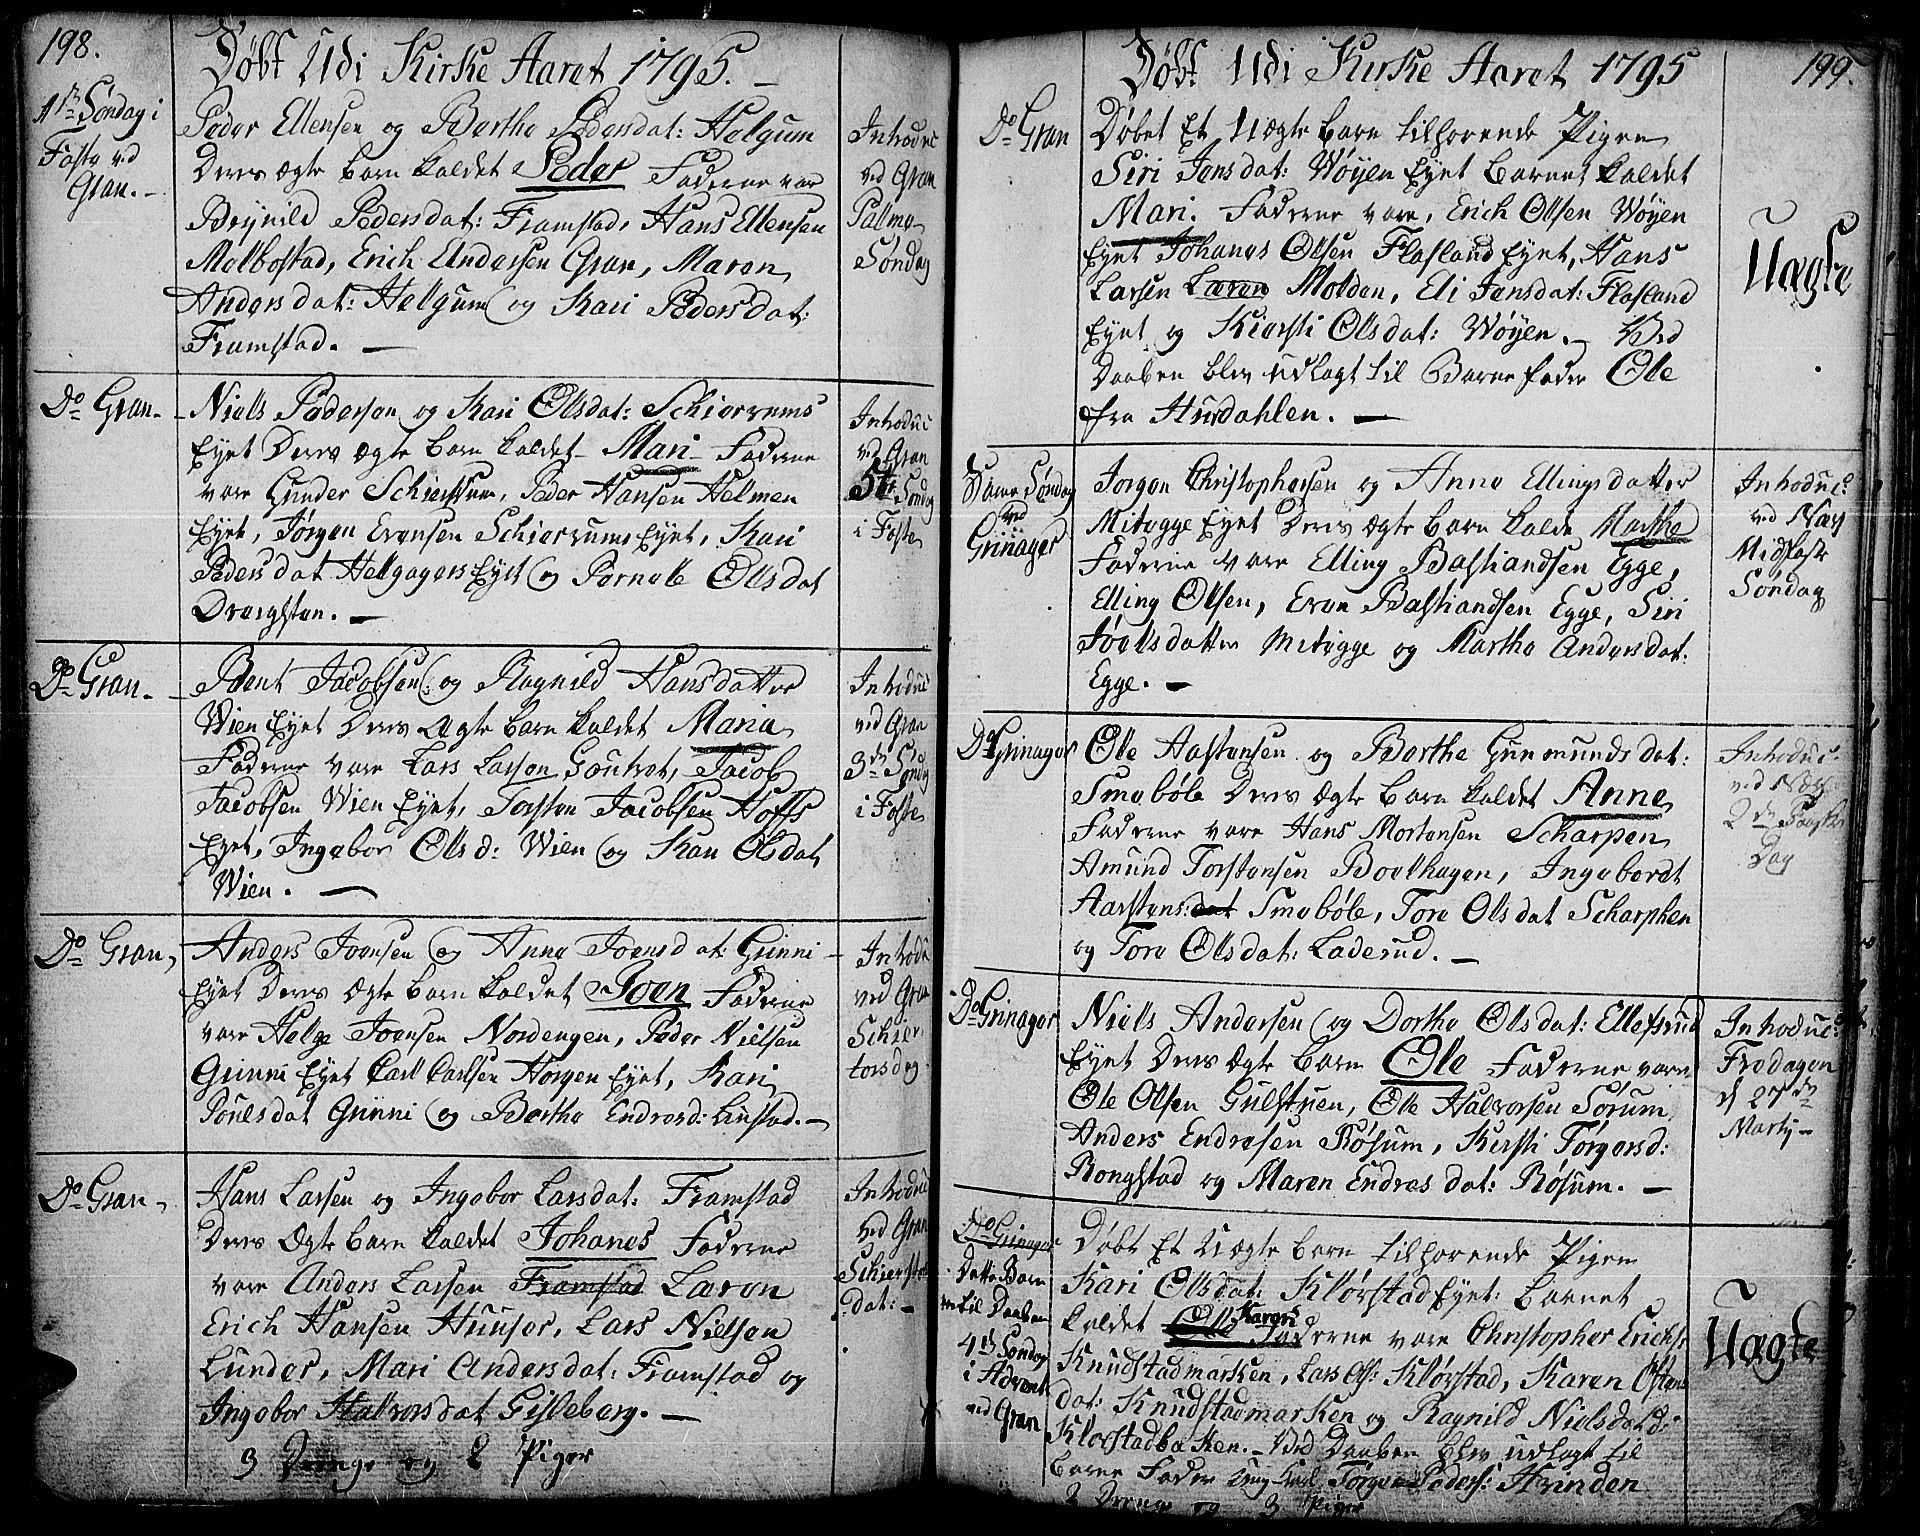 198.
Døbt Udi Kirke Aaret 1795. –
4de Søndag i
Faste ved
Gran. –
Peder Ellensen og Berthe Pedersdat: Helgum
Deres Ægte barn kaldet Peder Faderne var
Beynild Pedersdat: Framstad, Hans Ellensen
Melbostad, Erich Andersen Gran, Maren
Andersdat: Helgum og Kari Pedersdat:
Framstad. –
Introduc
ved Gran
Palme
Søndag
Do Gran. –
Niels Pedersen og Kari Olsdat: Schiervums
Eyet Deres Ægte barn kaldet Mari Faderne
vare Gunder Schierstum, Peder Hansen Helmen
Eyet, Jørgen Evensen Schiervums Eyet, Kari
Pedersdat Helgagers Eyet og Pernele Olsdat
Dvergsten. –
Introduc
ved Gran
5te Søndag
i Faste
Do Gran. –
Bent Jacobsen og Ragnild Hansdatter
Wien Eyet Deres Ægte barn kaldet Maria
Faderne vare Lars Larsen Goutvet, Jacob
Jacobsen Wien Eyet, Torsten Jacobsen Hoffs
Eyet, Ingebor Olsd: Wien og Kari Olsdat
Wien. –
Introduc
ved Gran
3de Søndag
i Faste
Do Gran,
Anders Joensen og Anne Joensdat: Grinni –
Eyet Deres Ægte barn kaldet Joen Faderne
vare Helge Joensen Nordengen, Peder Nielsen
Grinni Eyet Carl Carlsen Horgen Eyet, Kari
Poulsdat Grinni og Berthe Endresd: Linstad. –
Introdu
ved Gran
Schier
torsdag
Do Gran,
Hans Larsen og Ingebor Larsdat: Framstad
Deres Ægte barn kaldet Johanes Faderne
vare Anders Larsen Framstad Læren
Erich Hansen Hunser, Lars Nielsen
Lunder, Mari Andersdat: Framstad og
Ingebor Halvorsdat Gisleberg. –
Introdu
ved Gran
Schiersto
dat: –
3 Drenge og 2 Piger
Døbt Udi Kirke Aaret 1795
199.
Do Gran
Døbet Et Uægte barn tilhørende Pigen
Siri Jensdat: Wøyen Eyet Barnet kaldet
Mari. Faderne vare, Erich Olsen Wøyen
Eyet Johanes Olsen Flasland Eyet, Hans
Larsen Læren Molden, Eli Jensdat: Flasland
Eyet og Kiersti Olsdat: Wøyen. – Ved
Daaben blev udlagt til Barne fader Ole
fra Hurdahlen. –
Uægte
Samme Søndag
ved
Grinager
Jørgen Christophersen og Anne Ellingsdatter
Mitegge Eyet Deres Ægte barn kalde Marthe
Faderne vare Elling Bastiandsen Egge,
Elling Olsen, Even Bastiandsen Egge, Siri
Joelsdatter Mitegge og Marthe Andersdat:
Egge. –
Introduc:
ved Næs
Midfaste
Søndag
Do Grinager
Ole Aastensen og Berthe Gunmundsdat:
Smebøle Deres Ægte barn kaldet Anne
Faderne vare Hans Mortensen Scharpen
Amund Torstensen Boelhagen, Ingebordt
Aarstens:dat Smebøle, Tore Olsdat Scharphen
og Tore Olsdat: Laderud. –
Introduc:
ved Næs
2den Paaske
Dag
Do Grinager
Niels Andersen og Dorthe Olsdat: Ellefsrud
Eyet Deres Ægte barn Ole Faderne vare
Ole Olsen Gulstuen, Ole Halvorsen Sørum,
Anders Endresen Røsum, Kersti Torgersd:
Rongstad og Maren Endresdat: Røsum. –
Introduc:
Fredagen
d 27de
Martj –
Do Grinager
Dette Barn
til Daaben
4de Søndag
i Advent
ved Gran
Døbt Et Uægte barn tilhørende Pigen
Kari Olsdat: Klørstad Eyet: barnet
kaldet Ole Karen Faderne vare Christopher Erichs:
Knudstadmarken, Lars Ols: Klørstad, Karen Østens
dat: Knudstadmarken og Ragnild Nielsdatd:
Klørstadbakken. – Ved Daaben blev udlagt til
barne Fader Ung Karl Jørgen Peders: Hvinden
Uægte
2 Drenge og 3 Piger